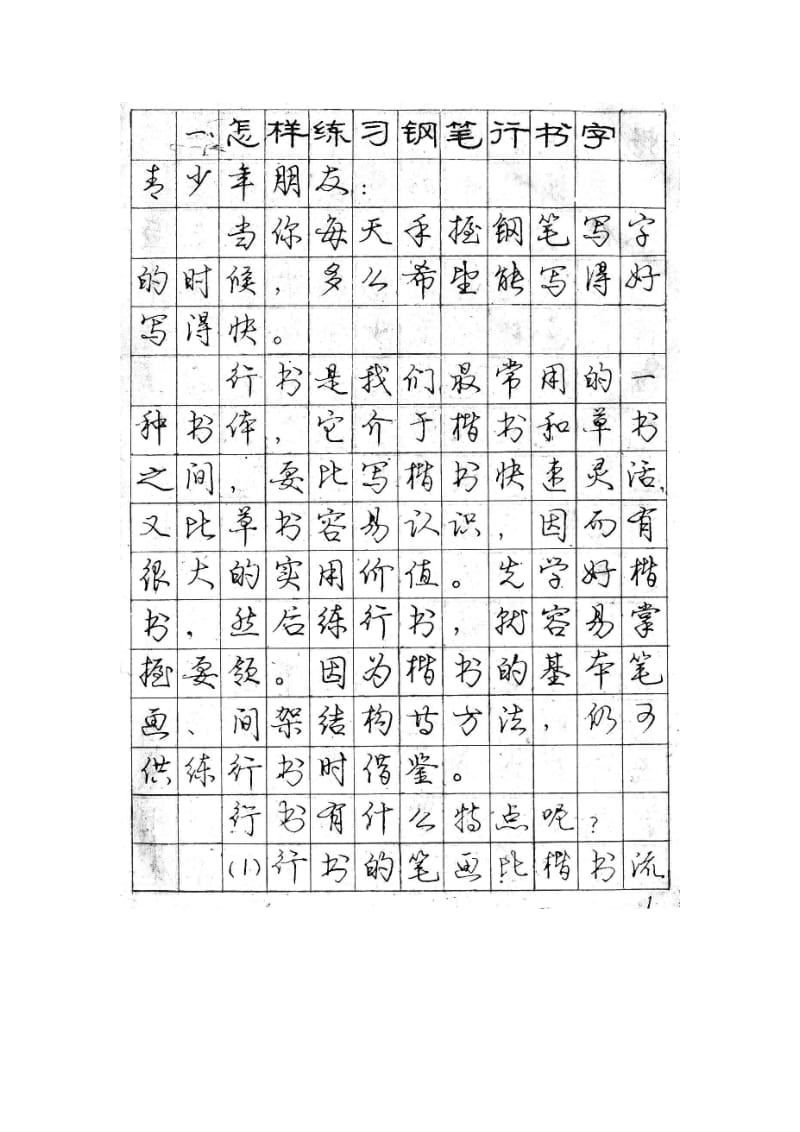 一、怎样练习钢笔行书字
青少年朋友：
当你每天手握钢笔写字
的时候，多么希望能写得好
写得快。
行书是我们最常用的一
种书体，它介于楷书和草书
之间，要比写楷书快速灵活，
又比草书容易认识，因而有
很大的实用价值。先学好楷
书，然后练行书，就容易掌
握要领。因为楷书的基本笔
画、间架结构等方法，仍可
供练行书时借鉴。
行书有什么特点呢？
(1)行书的笔画比楷书流
1